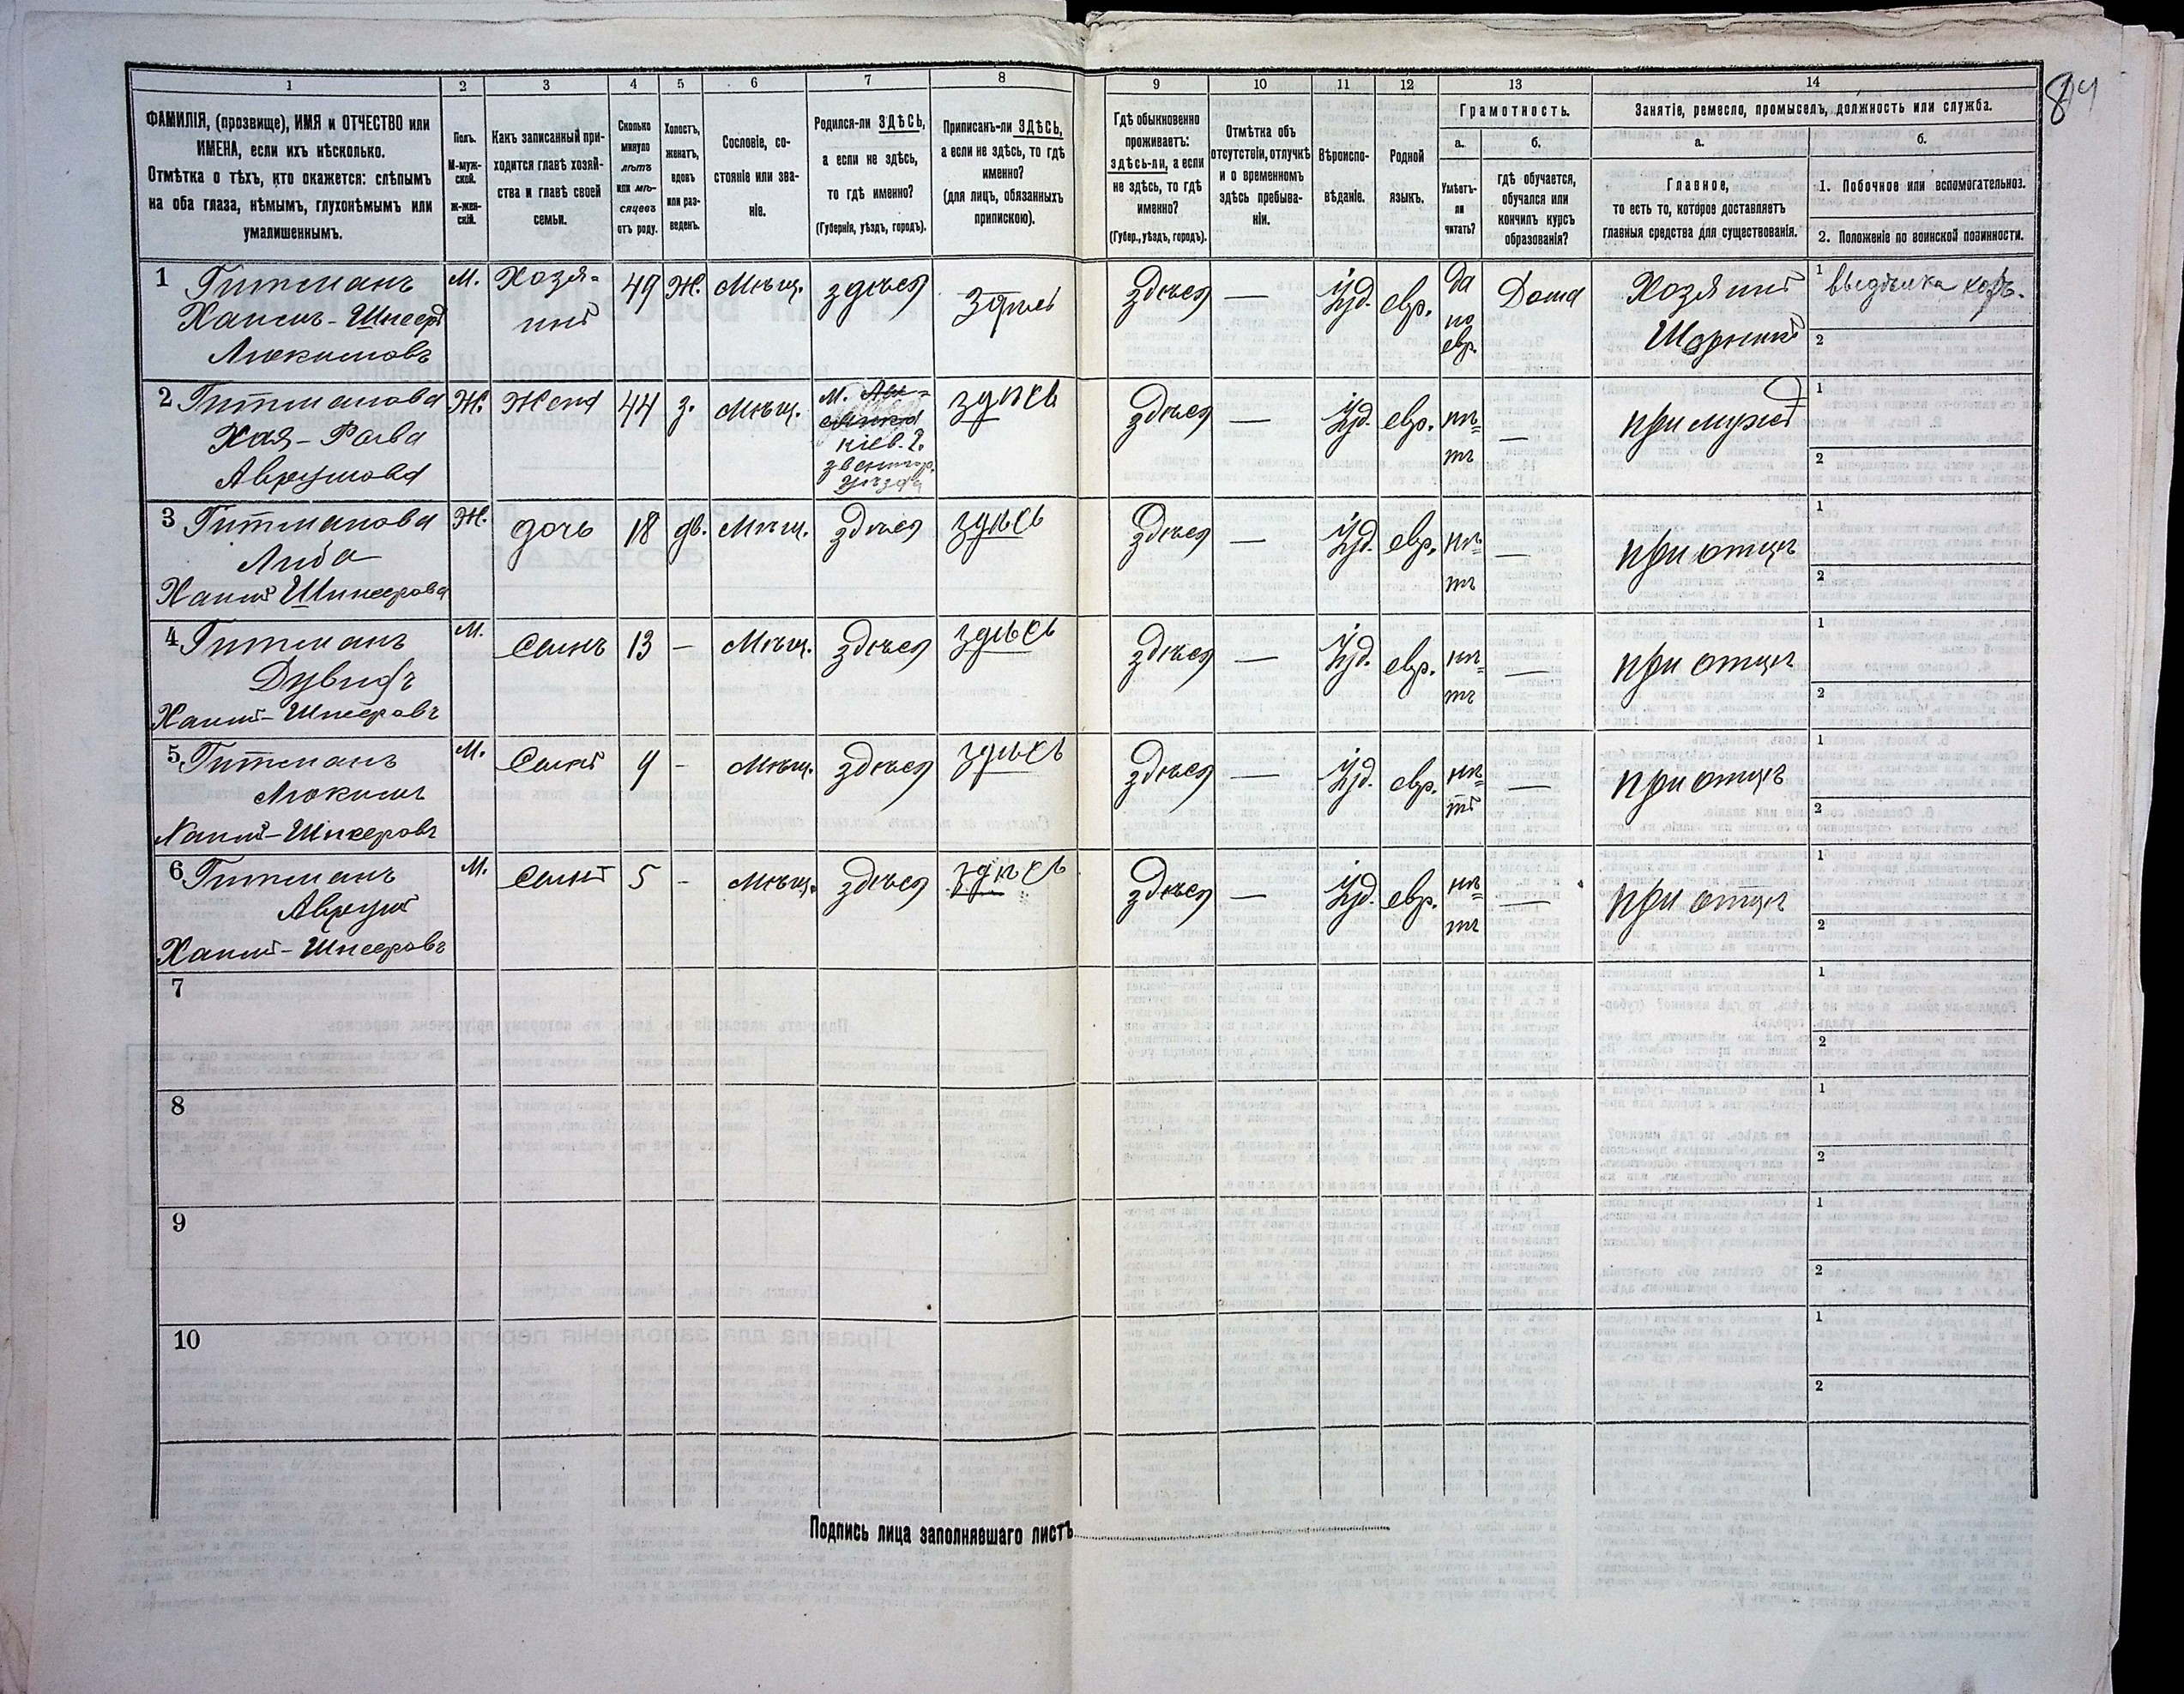 1 2 3 4 5 6 7 8 9 10 11 12 13 14
84
ФАМИЛІЯ, (прозвище), ИМЯ и ОТЧЕСТВО или
ИМЕНА, если ихъ нѣсколько.
Отмѣтка о тѣхъ, кто окажется: слѣпымъ
на оба глаза, нѣмымъ, глухонѣмымъ или
умалишеннымъ.
Полъ.
М-муж-
ской.
ж-жен-
скій.
Какъ записанный при-
ходится главѣ хозяй-
ства и главѣ своей
семьи.
Сколько
минуло
лѣтъ
или мѣ-
сяцевъ
отъ роду.
Холостъ,
женатъ,
вдовъ
или раз-
веденъ.
Сословіе, со-
стояніе или зва-
ніе.
Родился-ли ЗДѢСЬ,
а если не здѣсь,
то гдѣ именно?
(Губернія, уѣздъ, городъ).
Приписанъ-ли ЗДѢСЬ,
а если не здѣсь, то гдѣ
именно?
(для лицъ, обязанныхъ
припискою).
Гдѣ обыкновенно
проживаетъ:
здѣсь-ли, а если
не здѣсь, то гдѣ
именно?
(Губер., уѣздъ, городъ).
Отмѣтка объ
отсутствіи, отлучкѣ
и о временномъ
здѣсь пребыва-
ніи.
Вѣроиспо-
вѣданіе.
Родной
языкъ.
Грамотность.
а.
Умѣетъ-
ли
читать?
б.
гдѣ обучается,
обучался или
кончилъ курсъ
образованія?
Занятіе, ремесло, промыселъ, должность или служба.
а.
Главное,
то есть то, которое доставляетъ
главныя средства для существованія.
б.
1. Побочное или вспомогательное.
2. Положеніе по воинской повинности.
1 Гитманъ
Хаимъ-Шнеер
Люкимовъ
М.
Хозя-
инъ
49
Ж.
Мѣщ.
здѣся
здѣсь
здѣся
—
Іуд.
евр.
Да
по
евр.
Дома
Хозяинъ
Шорникъ
1
2
2 Гитманова
Хая-Рахва
Аврумова
Ж.
Жена
44
з.
Мѣщ.
Кіев. г.
звенигор.
уѣзда
здѣсь
здѣся
—
Іуд.
евр.
нѣ=
тъ
—
при мужѣ
1
2
3 Гитманова
Либа
Хаимъ Шнеерова
Ж.
дочь
18
дв.
Мѣщ.
здѣся
здѣсь
здѣся
—
Іуд.
евр.
нѣ=
тъ
—
при отцѣ
1
2
4 Гитманъ
Дувидъ
Хаимъ-Шнееровъ
М.
Сынъ
13
—
Мѣщ.
здѣся
здѣсь
здѣся
—
Іуд.
евр.
нѣ=
тъ
—
при отцѣ
1
2
5 Гитманъ
Люкимъ
Хаимъ-Шнееровъ
М.
Сынъ
9
-
Мѣщ.
здѣся
здѣсь
здѣся
—
Іуд.
евр.
нѣ=
тъ
—
при отцѣ
1
2
6 Гитманъ
Аврумъ
Хаимъ-Шнееровъ
М.
Сынъ
5
-
Мѣщ.
здѣся
здѣсь
здѣся
—
Іуд.
евр.
нѣ=
тъ
—
при отцѣ
1
2
7
1
2
8
1
2
9
1
2
10
1
2
Подпись лица заполнявшаго листъ